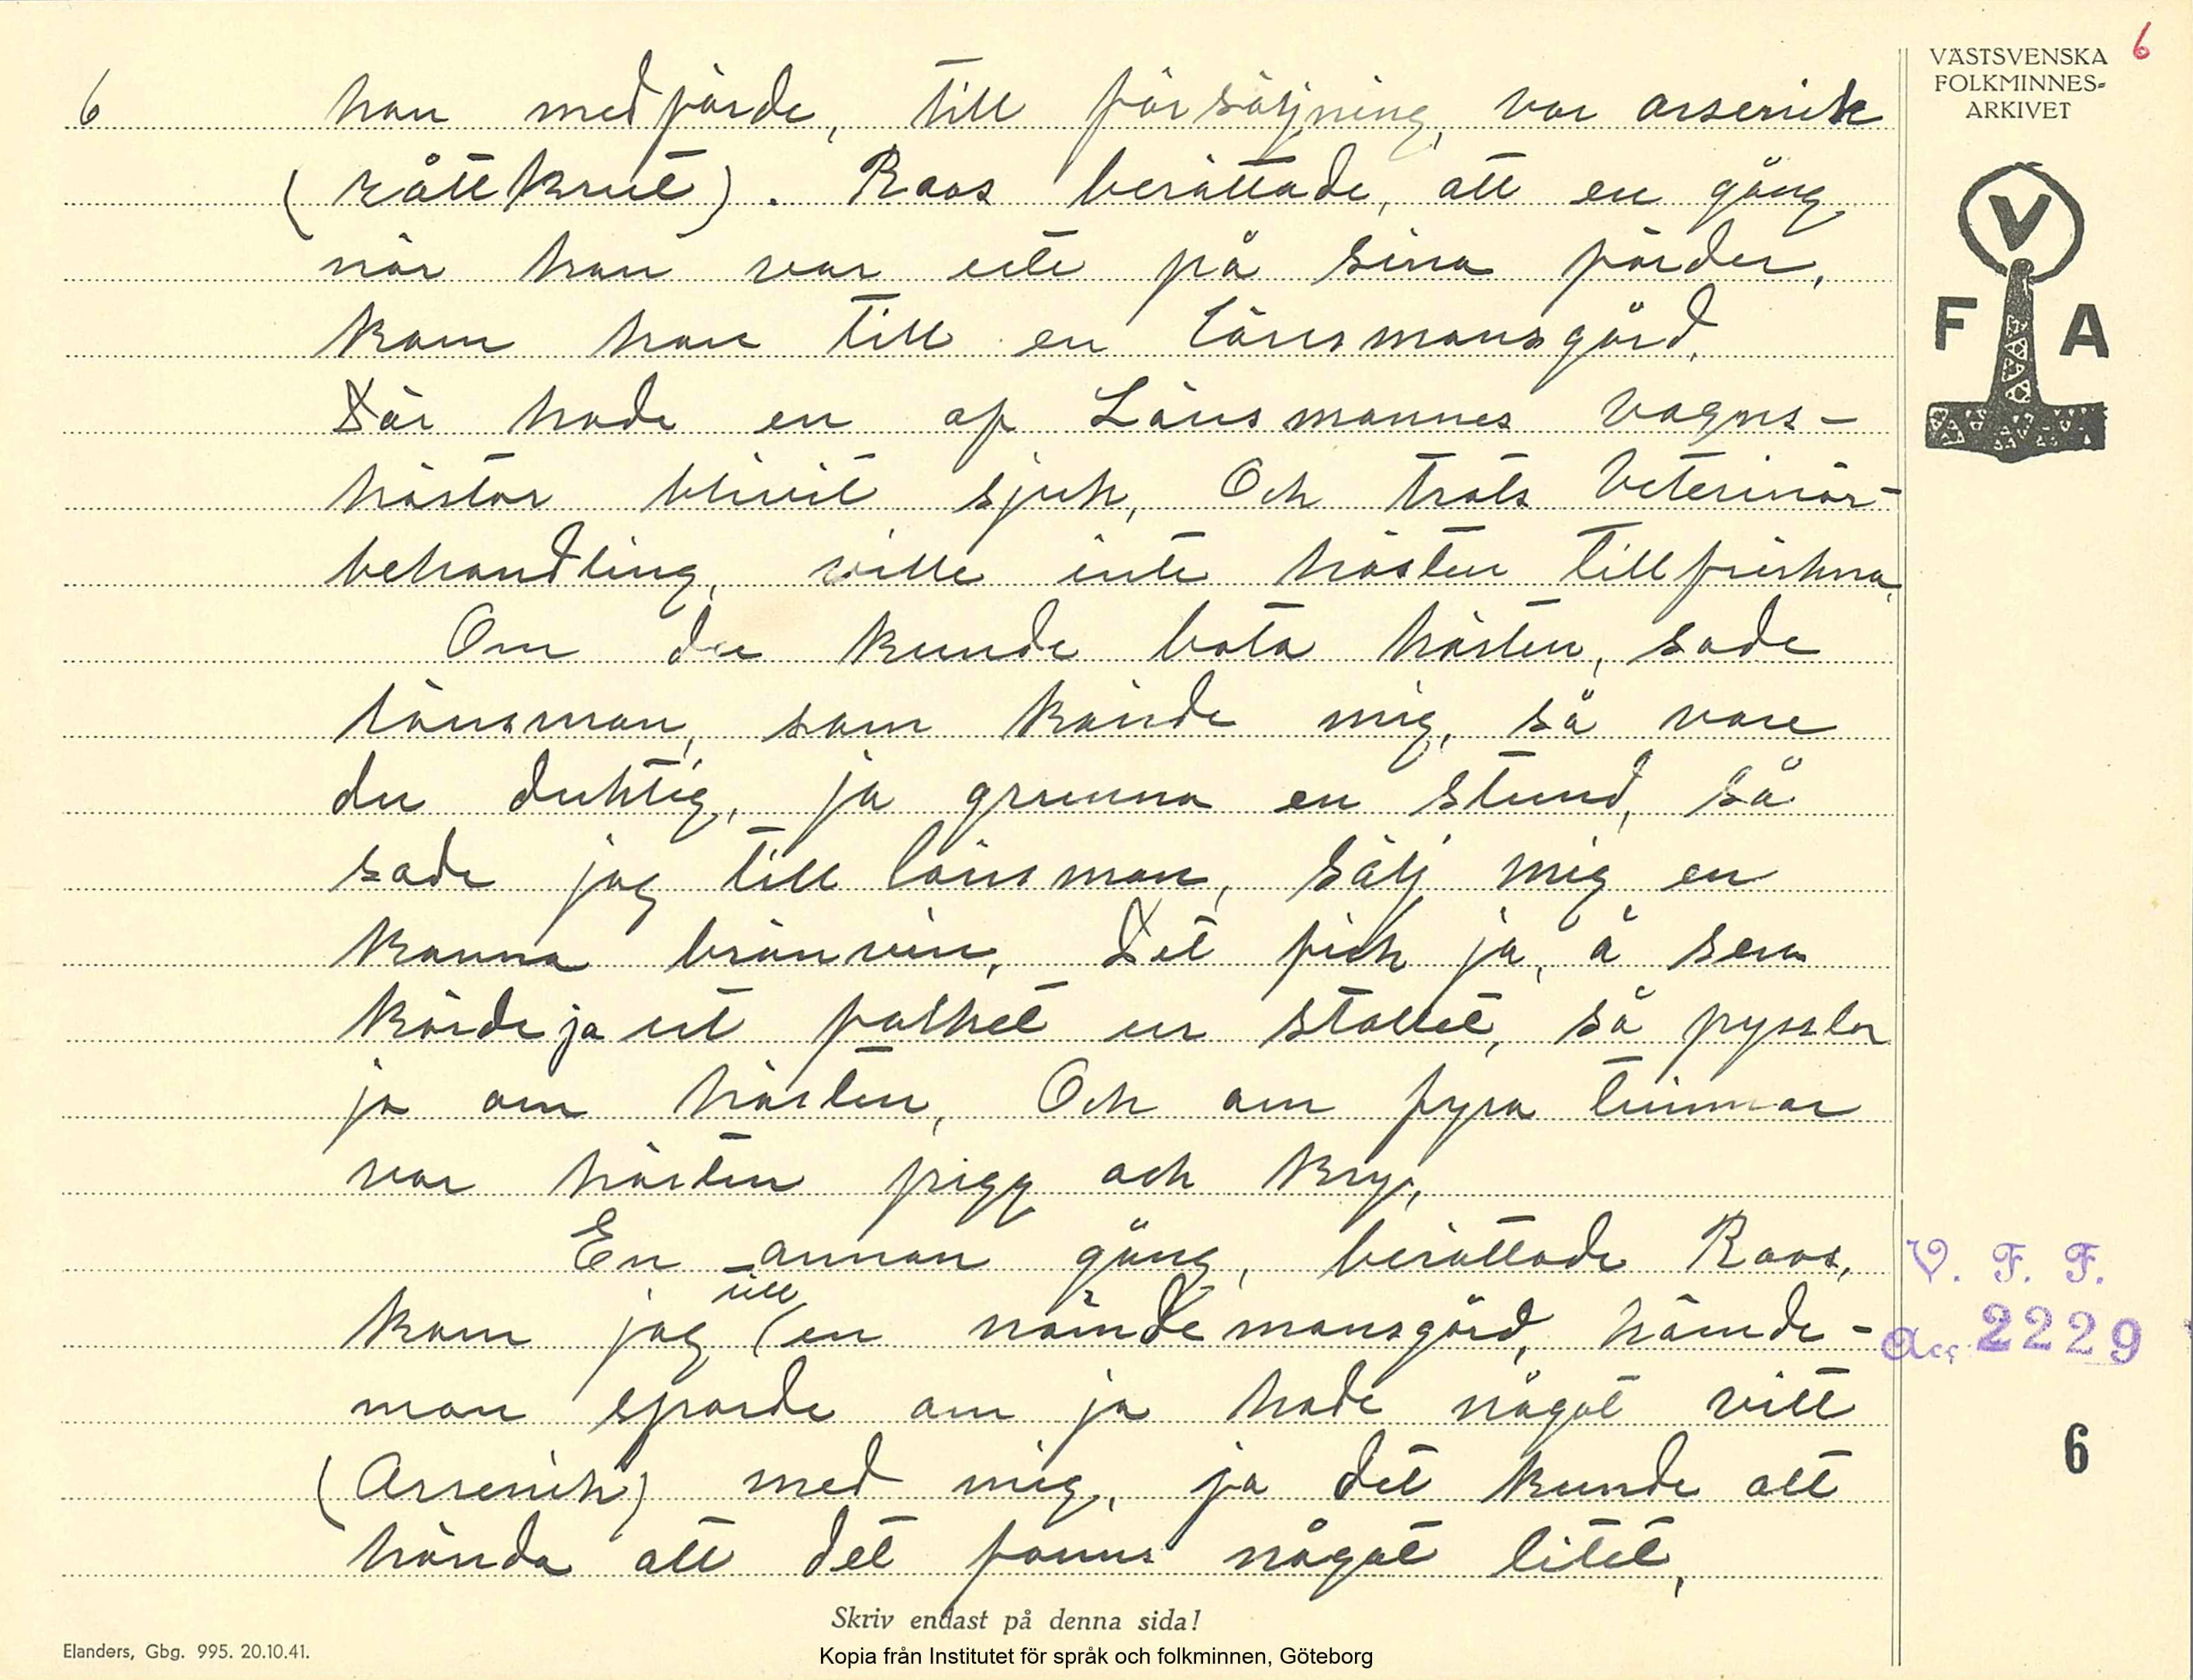 6
VÄSTSVENSKA
FOLKMINNES-
ARKIVET
6 han medförde, till försäljning, var arsenik
(råttkrut). Roos berättade, att en gång
när han var ute på sina färder,
kom han till en länsmansgård.
Där hade en af Länsmannes vagns-
hästar blivit sjuk, Och trots Veterinär-
behandling, ville inte hästen tillfriskna,
Om du kunde bota hästen, sade
länsman, som kände mig, så vore
du duktig, ja grunna en stund, så
sade jag till länsman, sälj mig en
kanna brännvin, Det fick ja, å sen
körde ja ut folket ur stallet, så pyssla
ja om hästen, Och om fyra timmar
var hästen pigg och kry,
En annan gång, berättade Roos,
kom jag till (en nämdemansgård, nämde-
man sporde om ja hade något vitt
(Arsenik) med mig, ja det kunde att
hända att det fanns något litet,
V
F A
V. F. F.
Acc. 2229
6
Skriv endast på denna sida!
Elanders, Gbg. 995. 20.10.41.
Kopia från Institutet för språk och folkminnen, Göteborg